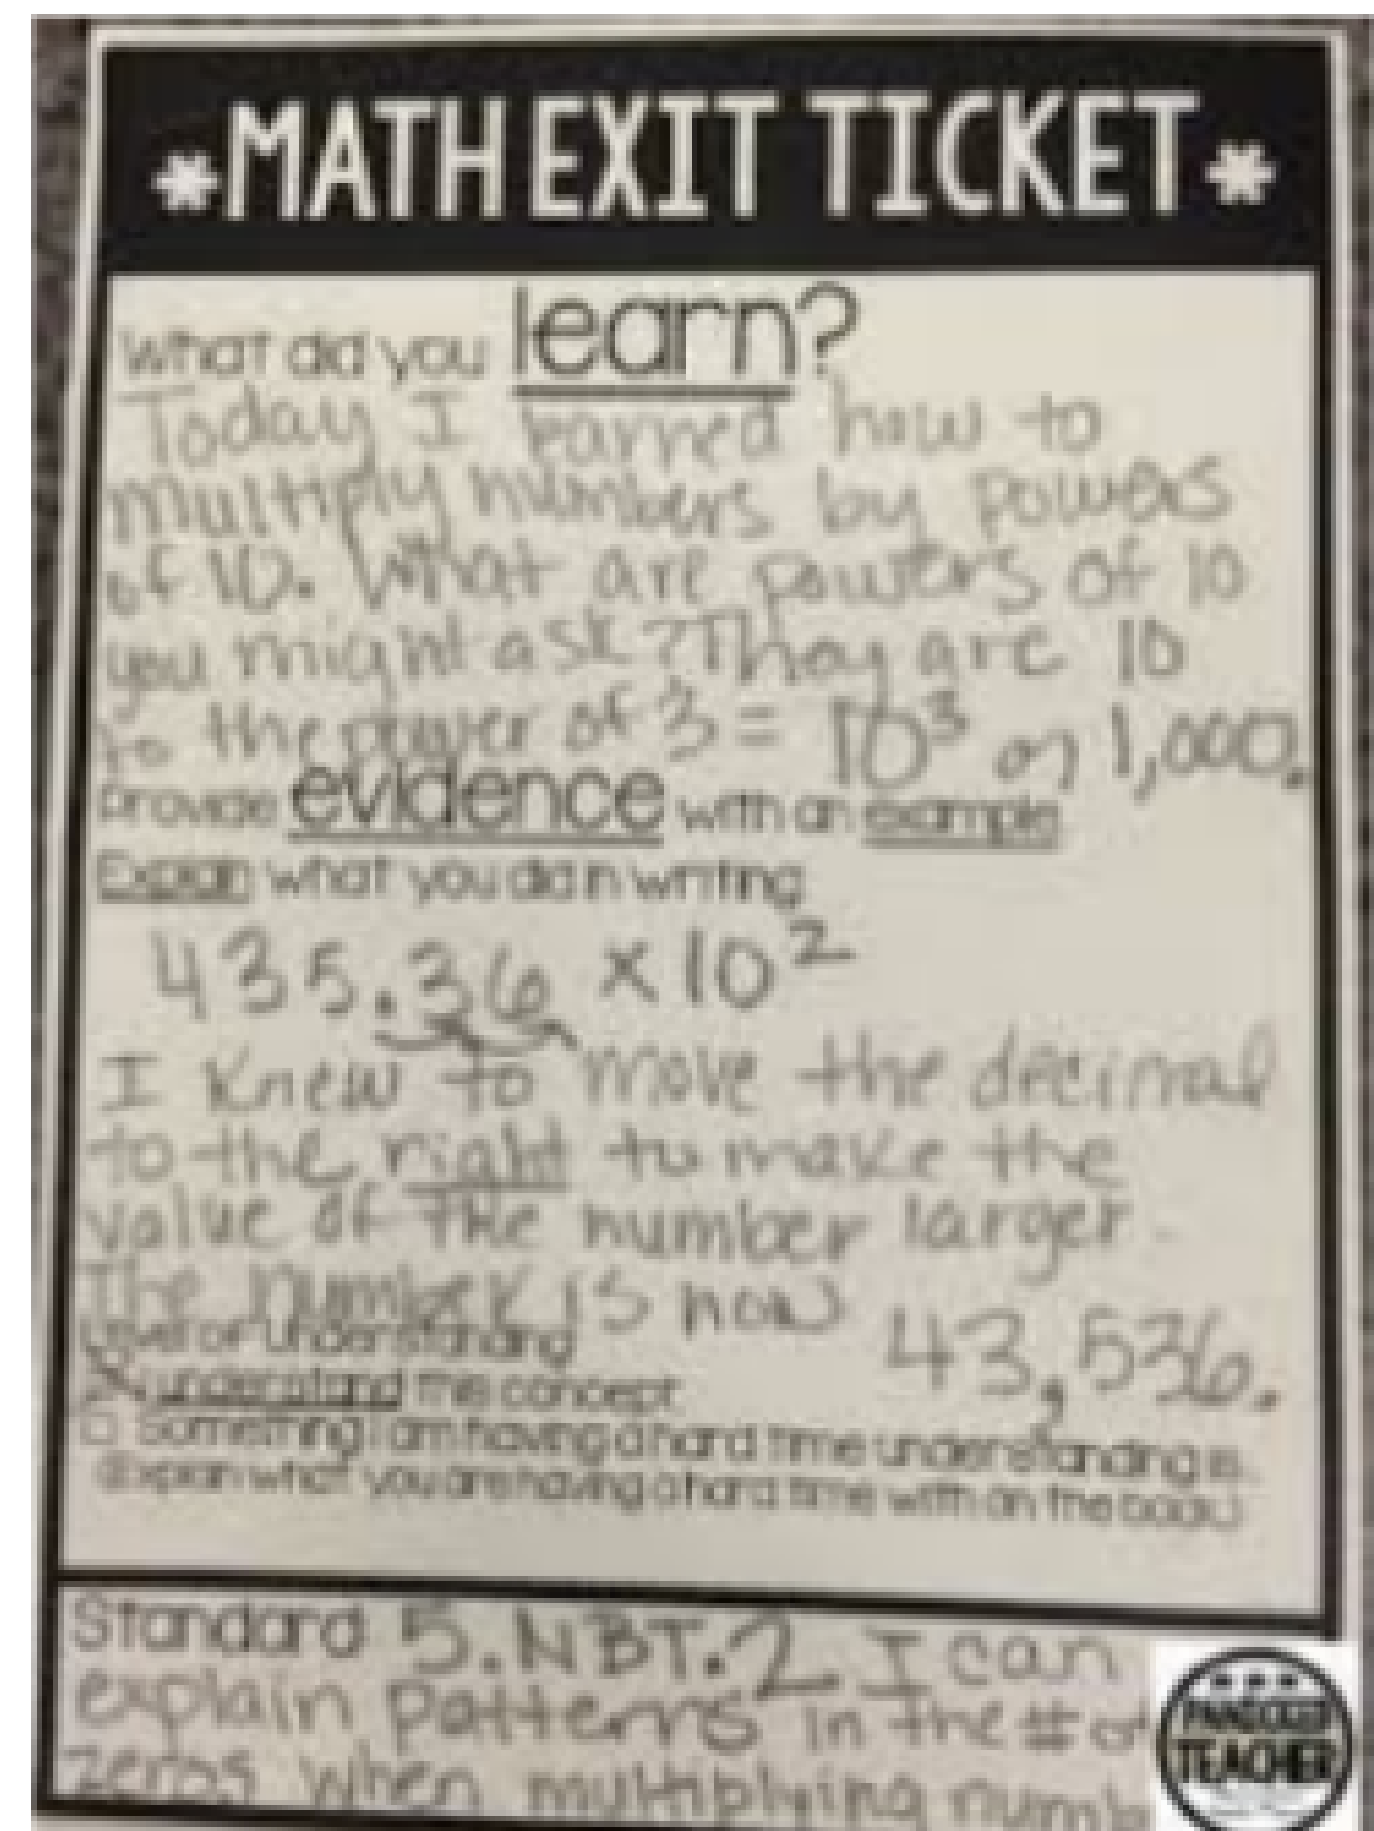 *MATH EXIT TICKET*
What did you learn?
Today I learned how to
multiply numbers by powers
of 10. What are powers of 10
you might ask? They are 10
to the power of 3 = 10³ or 1,000.
Provide evidence with an example.
Explain what you did in writing.
435.36 x 10²
I knew to move the decimal
to the right to make the
value of the number larger.
The number is now 43,536.
Level of Understanding
understand this concept.
Something I am having a hard time understanding is...
(Explain what you are having a hard time with on the back.)
Standard 5.NBT.2 I can
explain patterns in the # of
zeros when multiplying numb
TEACHER